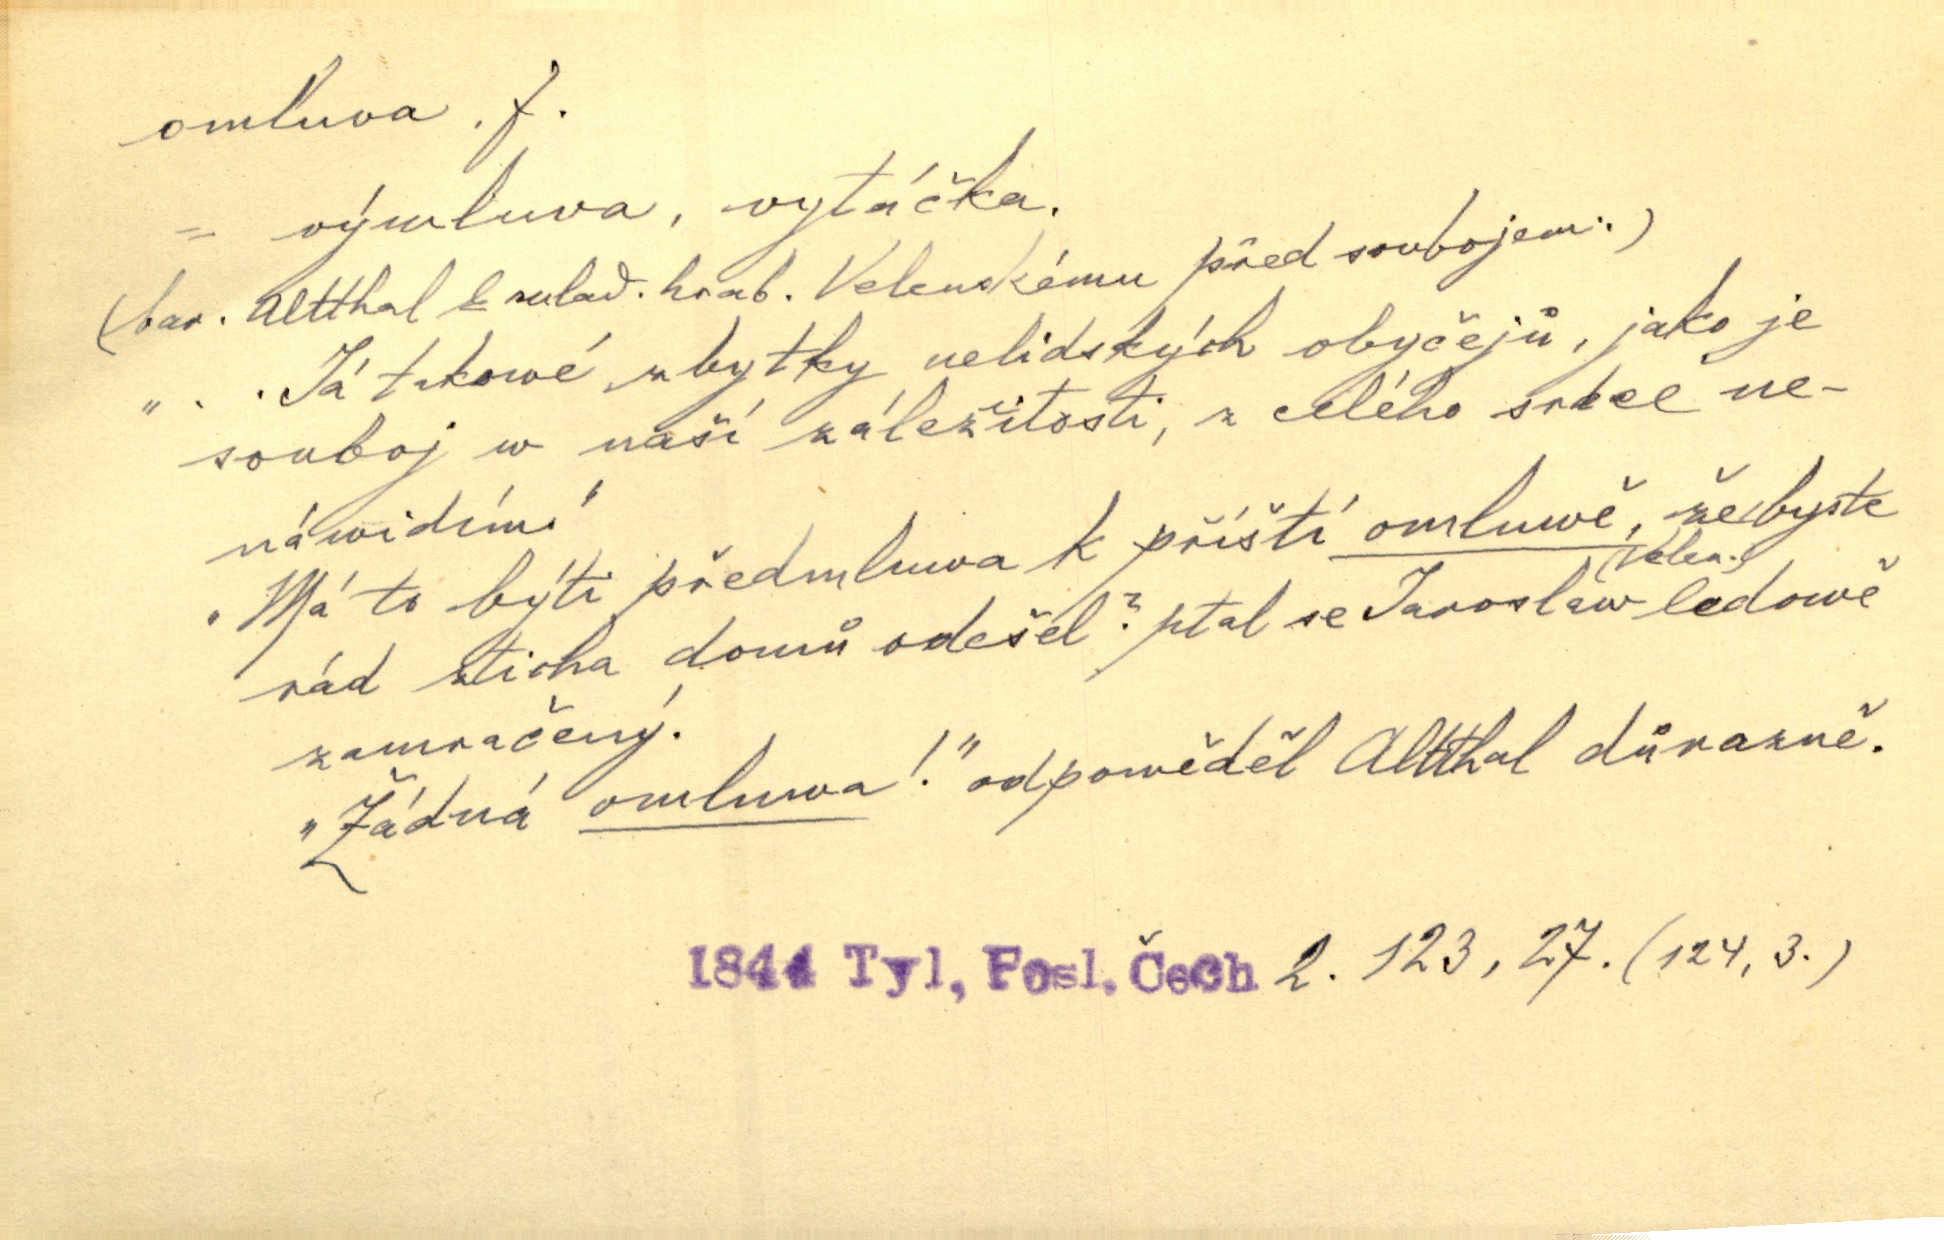 omluva, f.
= výmluva, vytáčka.
(bar. Altthal k mlad. hrab. Velenskému před soubojem:)
" . . Já takowé zbytky nelidských obyčejů, jako je
souboj w naší záležitosti, z celého srdce ne-
náwidím."
"Má to býti předmluwa k příští omluwě, že byste
(Velen.)
rád zticha domů odešel? ptal se Jaroslaw ledowě
zamračený.
"Žádná omluwa!" odpowěděl Altthal důrazně.
1844 Tyl, Posl. Čech 2. 123, 27. (124, 3.)